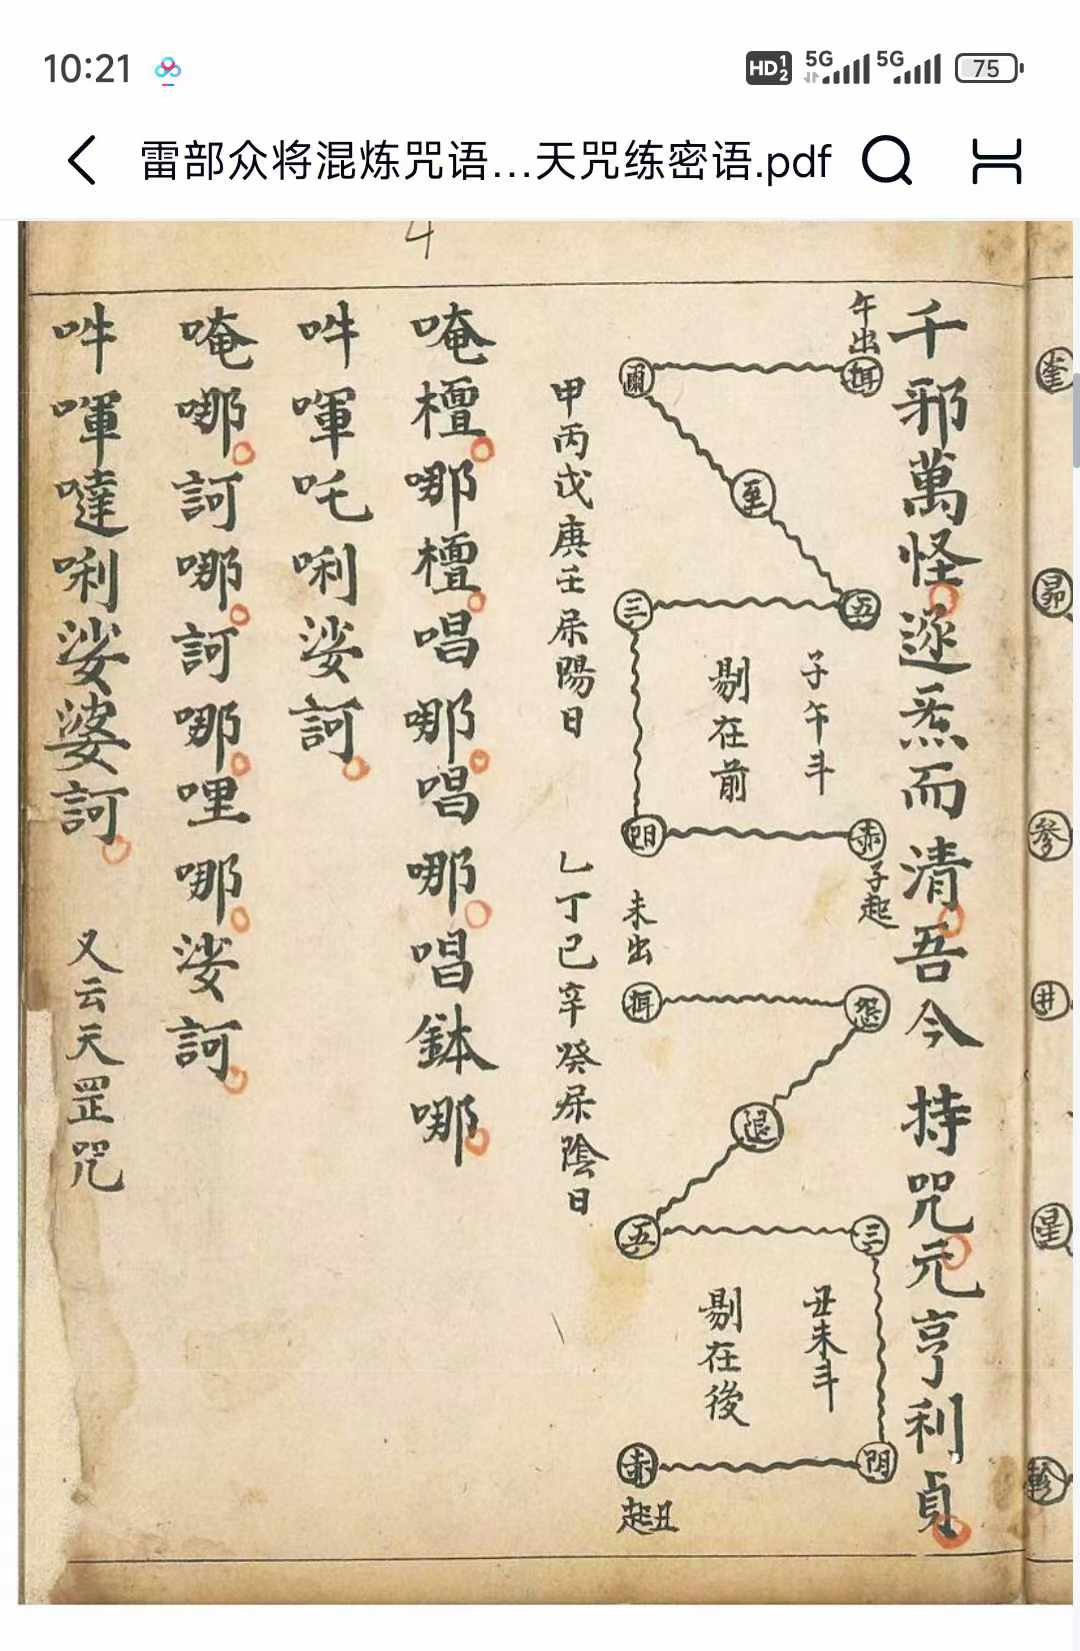 10:21
HD 1 2 5G 5G 75
雷部众将混炼咒语...天咒练密语.pdf
4
奎
昴
參
井
星
軫
千邪萬怪逐炁而清吾今持咒元亨利貞
午出
爾
至
三
五
子午斗
剔在前
阴
赤
子起
未出
退
五
三
丑未斗
剔在後
阴
赤
丑起
甲丙戊庚壬屎陽日
乚丁己辛癸屎陰日
唵檀哪檀唱哪唱哪唱鉢哪
吽㖇吒唎娑訶
唵哪訶哪訶哪哩哪娑訶
吽㖇噠唎娑婆訶
又云天罡咒